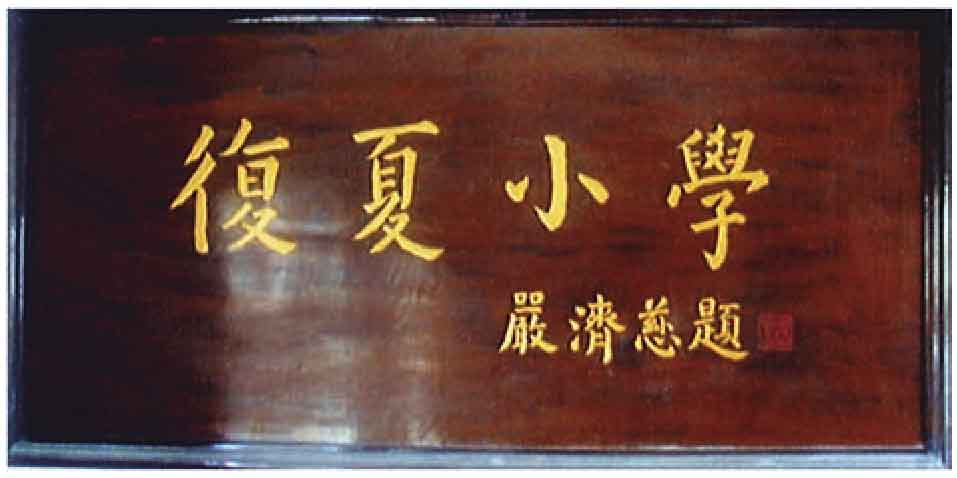 復夏小學
嚴濟慈題